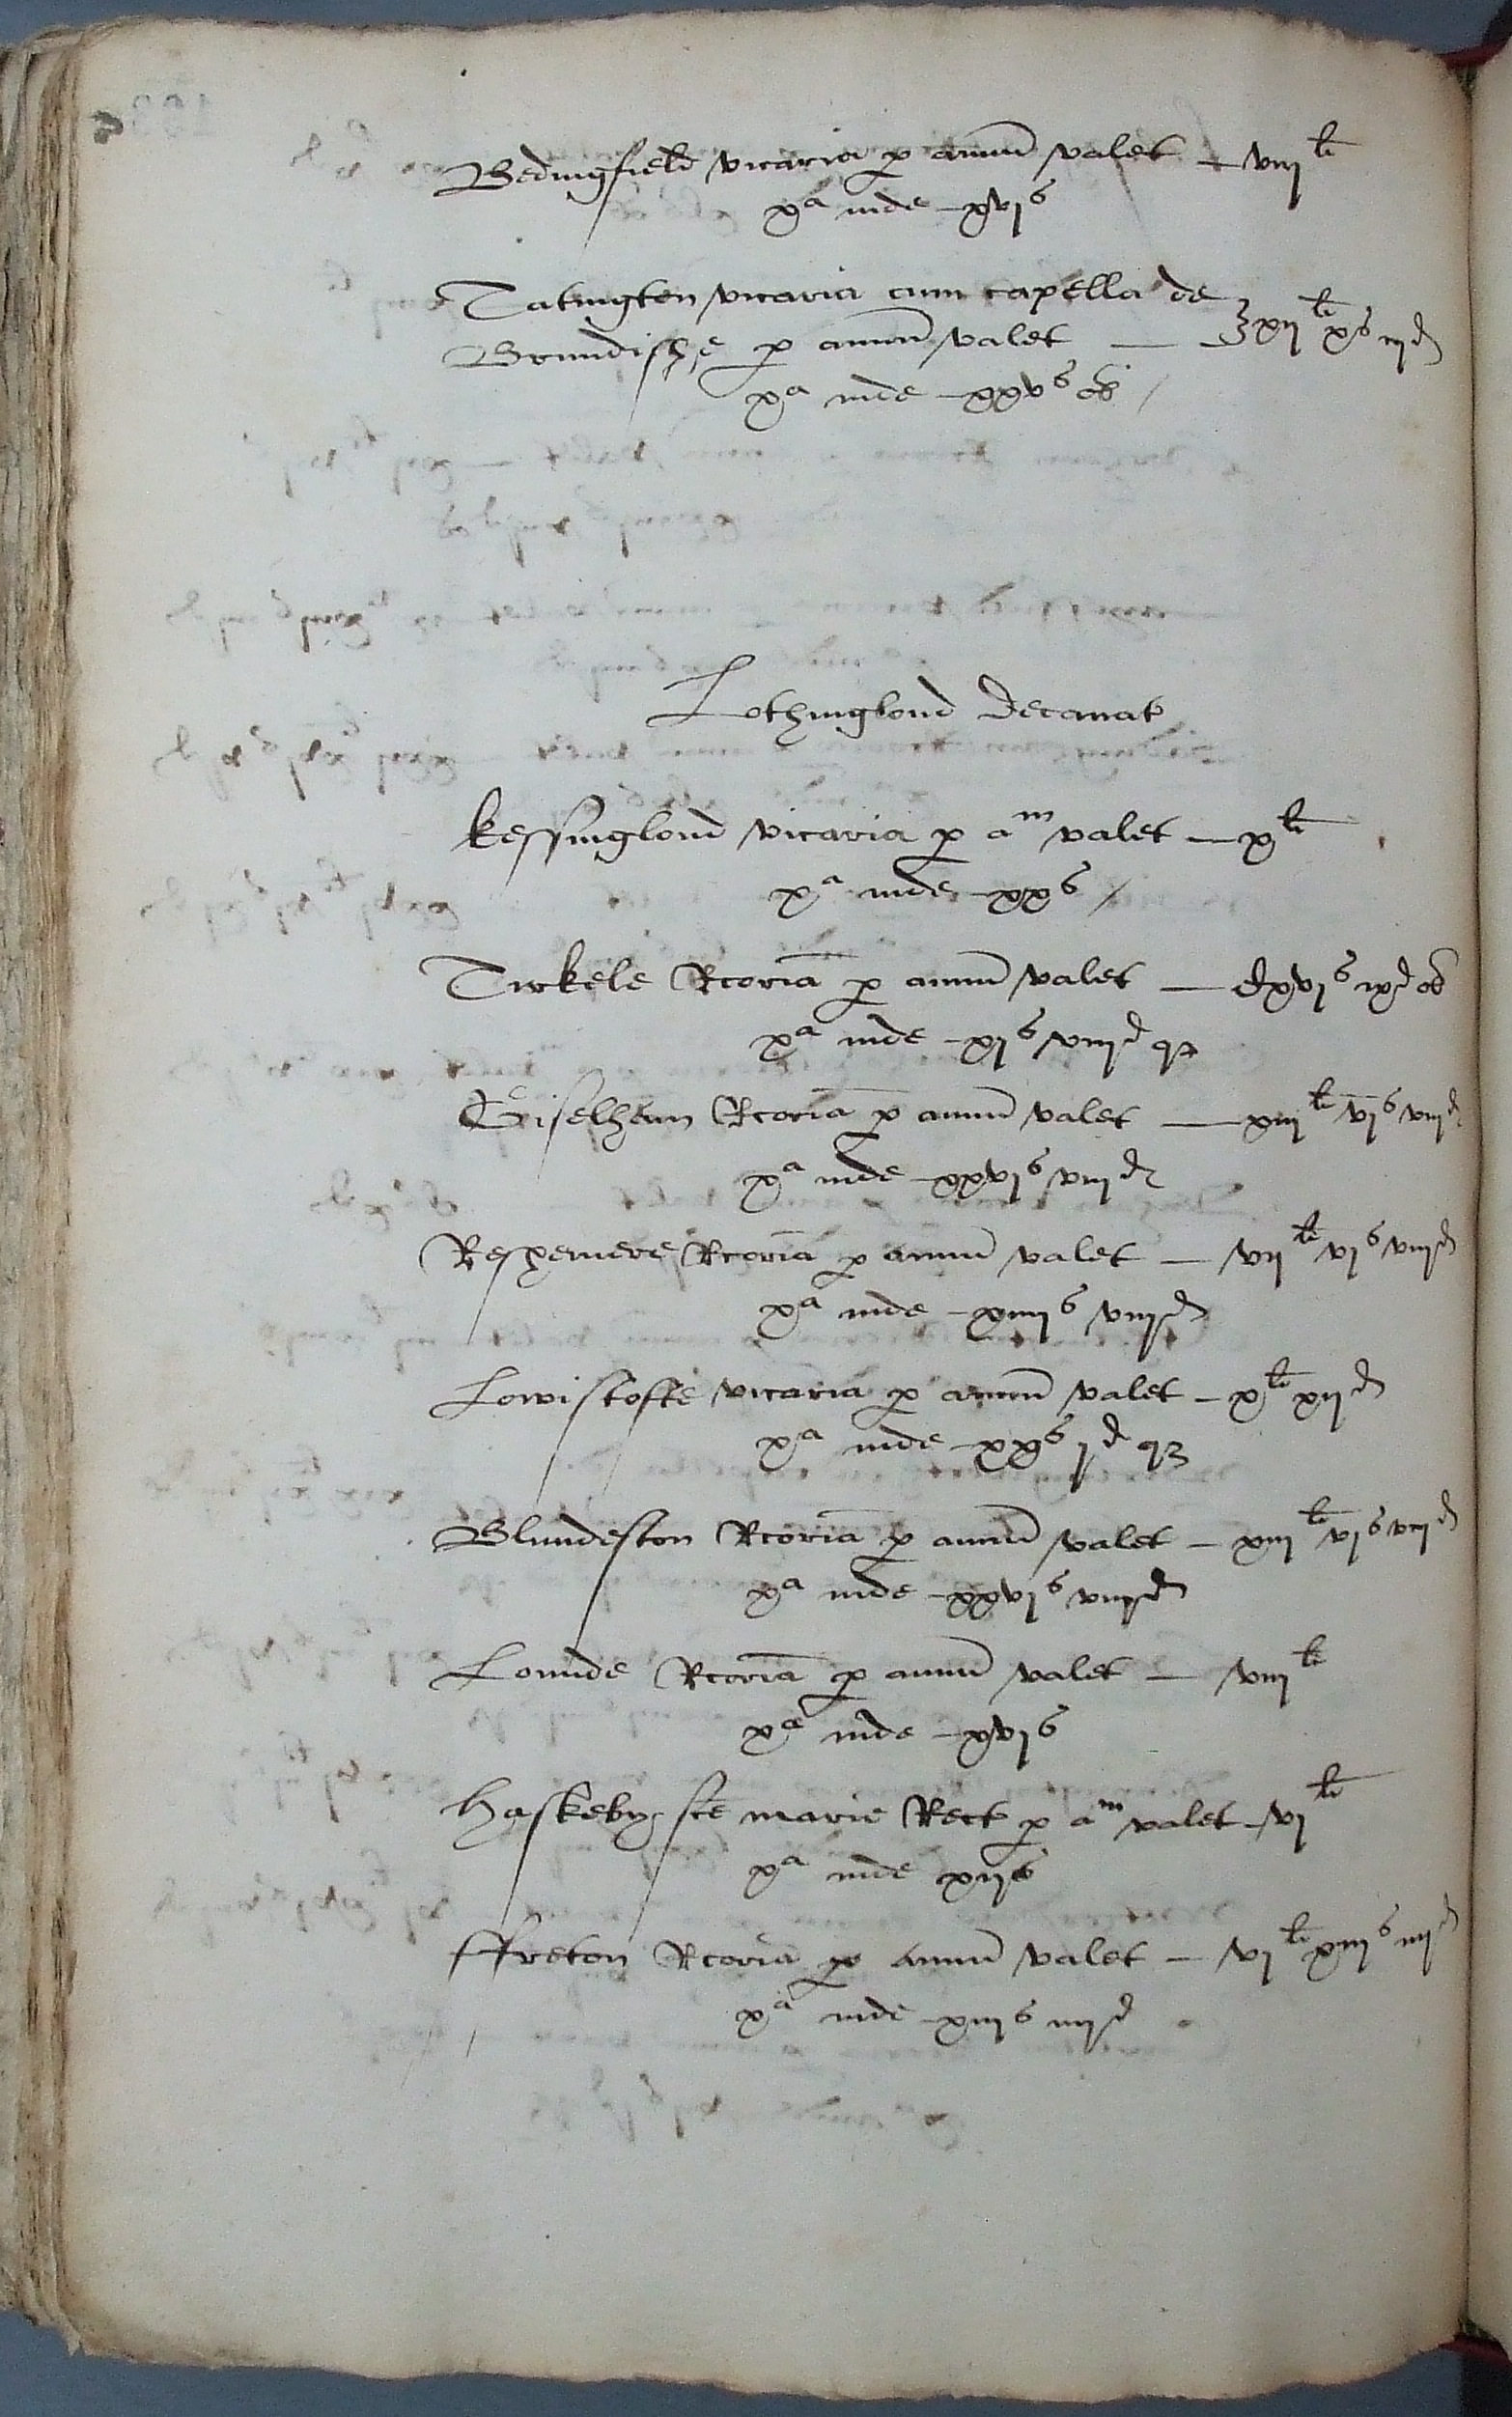 Bedingfield vicaria p annū valet — viij li
xa inde – xvjs
Tatington vicaria cum capella de
Brundishe p annū valet — xij li xs vd
xa inde – xxvs ob /
Lothinglond Decanat
Kessinglond vicaria p am valet — x li
xa inde – xxs /
Kirkele Rcoria p annū valet — Cxvjs ixd ob
xa inde – xjs viijd qa
Giselham Rcoria p annū valet — xiij li vjs viijd
xa inde – xxvjs viijd
Reshemere Rcoria p annū valet — vij li vjs viijd
xa inde – xiiijs viijd
Lowistofte vicaria p annū valet – x li xijd
xa inde – xxs jd qz
Blundeston Rcoria p annū valet – xiij li vjs viijd
xa inde – xxvjs viijd
Lounde Rcoria p annū valet — viij li
xa inde – xvjs
Haskeby sce marie Rect p am valet – vj li
xa inde xijs
ffreton Rcoria p annū valet — vj li xiijs iiijd
xa inde – xiijs iiijd